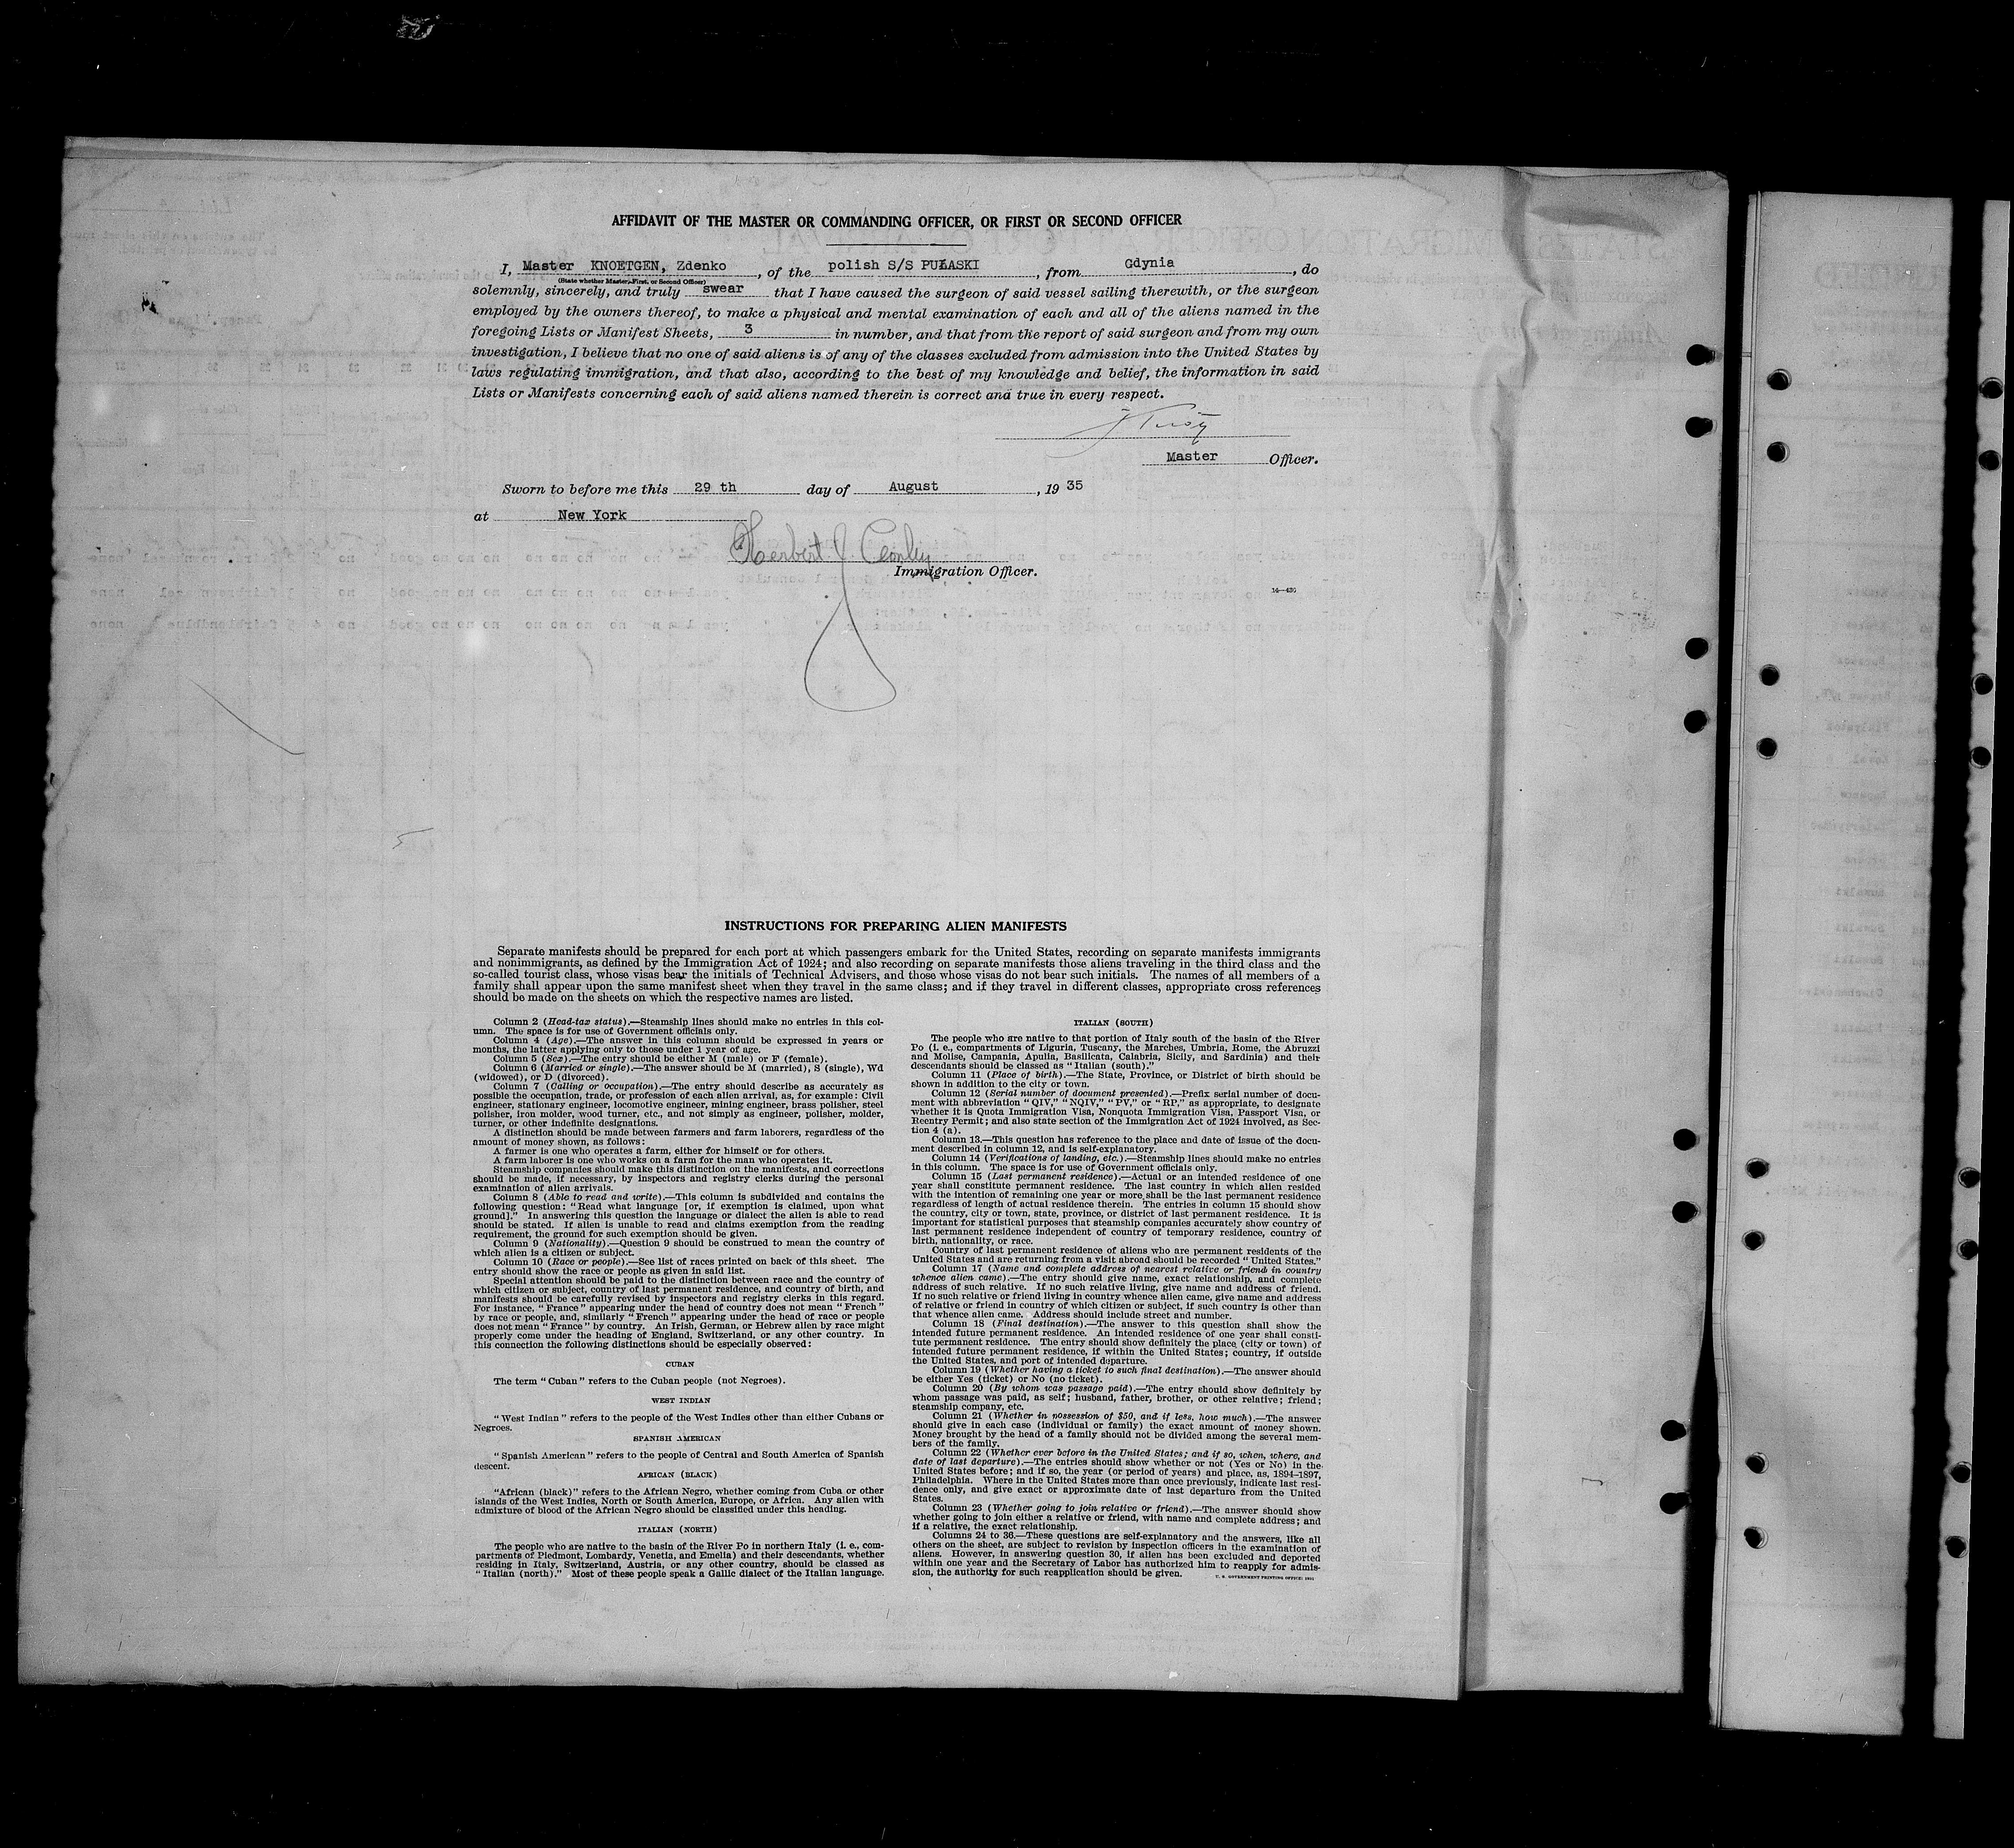 AFFIDAVIT OF THE MASTER OR COMMANDING OFFICER, OR FIRST OR SECOND OFFICER
I, Master KNOETGEN, Zdenko, of the polish S/S PUŁASKI, from Gdynia, do
(State whether Master, First, or Second Officer)
solemnly, sincerely, and truly swear that I have caused the surgeon of said vessel sailing therewith, or the surgeon
employed by the owners thereof, to make a physical and mental examination of each and all of the aliens named in the
foregoing Lists or Manifest Sheets, 3 in number, and that from the report of said surgeon and from my own
investigation, I believe that no one of said aliens is of any of the classes excluded from admission into the United States by
laws regulating immigration, and that also, according to the best of my knowledge and belief, the information in said
Lists or Manifests concerning each of said aliens named therein is correct and true in every respect.
Master Officer.
Sworn to before me this 29 th day of August, 19 35
at New York
Herbert J.
Immigration Officer.
14—430
INSTRUCTIONS FOR PREPARING ALIEN MANIFESTS
Separate manifests should be prepared for each port at which passengers embark for the United States, recording on separate manifests immigrants
and nonimmigrants, as defined by the Immigration Act of 1924; and also recording on separate manifests those aliens traveling in the third class and the
so-called tourist class, whose visas bear the initials of Technical Advisers, and those whose visas do not bear such initials. The names of all members of a
family shall appear upon the same manifest sheet when they travel in the same class; and if they travel in different classes, appropriate cross references
should be made on the sheets on which the respective names are listed.
Column 2 (Head-tax status).—Steamship lines should make no entries in this col-
umn. The space is for use of Government officials only.
Column 4 (Age).—The answer in this column should be expressed in years or
months, the latter applying only to those under 1 year of age.
Column 5 (Sex).—The entry should be either M (male) or F (female).
Column 6 (Married or single).—The answer should be M (married), S (single), Wd
(widowed), or D (divorced).
Column 7 (Calling or occupation).—The entry should describe as accurately as
possible the occupation, trade, or profession of each alien arrival, as, for example: Civil
engineer, stationary engineer, locomotive engineer, mining engineer, brass polisher, steel
polisher, iron molder, wood turner, etc., and not simply as engineer, polisher, molder,
turner, or other indefinite designations.
A distinction should be made between farmers and farm laborers, regardless of the
amount of money shown, as follows:
A farmer is one who operates a farm, either for himself or for others.
A farm laborer is one who works on a farm for the man who operates it.
Steamship companies should make this distinction on the manifests, and corrections
should be made, if necessary, by inspectors and registry clerks during the personal
examination of alien arrivals.
Column 8 (Able to read and write).—This column is subdivided and contains the
following question: "Read what language [or, if exemption is claimed, upon what
ground]." In answering this question the language or dialect the alien is able to read
should be stated. If alien is unable to read and claims exemption from the reading
requirement, the ground for such exemption should be given.
Column 9 (Nationality).—Question 9 should be construed to mean the country of
which alien is a citizen or subject.
Column 10 (Race or people).—See list of races printed on back of this sheet. The
entry should show the race or people as given in said list.
Special attention should be paid to the distinction between race and the country of
which citizen or subject, country of last permanent residence, and country of birth, and
manifests should be carefully revised by inspectors and registry clerks in this regard.
For instance, "France" appearing under the head of country does not mean "French"
by race or people, and, similarly "French" appearing under the head of race or people
does not mean "France" by country. An Irish, German, or Hebrew alien by race might
properly come under the heading of England, Switzerland, or any other country. In
this connection the following distinctions should be especially observed:
CUBAN
The term "Cuban" refers to the Cuban people (not Negroes).
WEST INDIAN
"West Indian" refers to the people of the West Indies other than either Cubans or
Negroes.
SPANISH AMERICAN
"Spanish American" refers to the people of Central and South America of Spanish
descent.
AFRICAN (BLACK)
"African (black)" refers to the African Negro, whether coming from Cuba or other
islands of the West Indies, North or South America, Europe, or Africa. Any alien with
admixture of blood of the African Negro should be classified under this heading.
ITALIAN (NORTH)
The people who are native to the basin of the River Po in northern Italy (i. e., com-
partments of Piedmont, Lombardy, Venetia, and Emelia) and their descendants, whether
residing in Italy, Switzerland, Austria, or any other country, should be classed as
"Italian (north)." Most of these people speak a Gallic dialect of the Italian language.
ITALIAN (SOUTH)
The people who are native to that portion of Italy south of the basin of the River
Po (i. e., compartments of Liguria, Tuscany, the Marches, Umbria, Rome, the Abruzzi
and Molise, Campania, Apulia, Basilicata, Calabria, Sicily, and Sardinia) and their
descendants should be classed as "Italian (south)."
Column 11 (Place of birth).—The State, Province, or District of birth should be
shown in addition to the city or town.
Column 12 (Serial number of document presented).—Prefix serial number of docu-
ment with abbreviation "QIV," "NQIV," "PV," or "RP," as appropriate, to designate
whether it is Quota Immigration Visa, Nonquota Immigration Visa, Passport Visa, or
Reentry Permit; and also state section of the Immigration Act of 1924 involved, as Sec-
tion 4 (a).
Column 13.—This question has reference to the place and date of issue of the docu-
ment described in column 12, and is self-explanatory.
Column 14 (Verifications of landing, etc.).—Steamship lines should make no entries
in this column. The space is for use of Government officials only.
Column 15 (Last permanent residence).—Actual or an intended residence of one
year shall constitute permanent residence. The last country in which alien resided
with the intention of remaining one year or more shall be the last permanent residence
regardless of length of actual residence therein. The entries in column 15 should show
the country, city or town, state, province, or district of last permanent residence. It is
important for statistical purposes that steamship companies accurately show country of
last permanent residence independent of country of temporary residence, country of
birth, nationality, or race.
Country of last permanent residence of aliens who are permanent residents of the
United States and are returning from a visit abroad should be recorded "United States."
Column 17 (Name and complete address of nearest relative or friend in country
whence alien came).—The entry should give name, exact relationship, and complete
address of such relative. If no such relative living, give name and address of friend.
If no such relative or friend living in country whence alien came, give name and address
of relative or friend in country of which citizen or subject, if such country is other than
that whence alien came. Address should include street and number.
Column 18 (Final destination).—The answer to this question shall show the
intended future permanent residence. An intended residence of one year shall consti-
tute permanent residence. The entry should show definitely the place (city or town) of
intended future permanent residence, if within the United States; country, if outside
the United States, and port of intended departure.
Column 19 (Whether having a ticket to such final destination).—The answer should
be either Yes (ticket) or No (no ticket).
Column 20 (By whom was passage paid).—The entry should show definitely by
whom passage was paid, as self; husband, father, brother, or other relative; friend;
steamship company, etc.
Column 21 (Whether in possession of $50, and if less, how much).—The answer
should give in each case (individual or family) the exact amount of money shown.
Money brought by the head of a family should not be divided among the several mem-
bers of the family.
Column 22 (Whether ever before in the United States; and if so, when, where, and
date of last departure).—The entries should show whether or not (Yes or No) in the
United States before; and if so, the year (or period of years) and place, as, 1894–1897,
Philadelphia. Where in the United States more than once previously, indicate last resi-
dence only, and give exact or approximate date of last departure from the United
States.
Column 23 (Whether going to join relative or friend).—The answer should show
whether going to join either a relative or friend, with name and complete address; and
if a relative, the exact relationship.
Columns 24 to 36.—These questions are self-explanatory and the answers, like all
others on the sheet, are subject to revision by inspection officers in the examination of
aliens. However, in answering question 30, if alien has been excluded and deported
within one year and the Secretary of Labor has authorized him to reapply for admis-
sion, the authority for such reapplication should be given.
U. S. GOVERNMENT PRINTING OFFICE: 1931